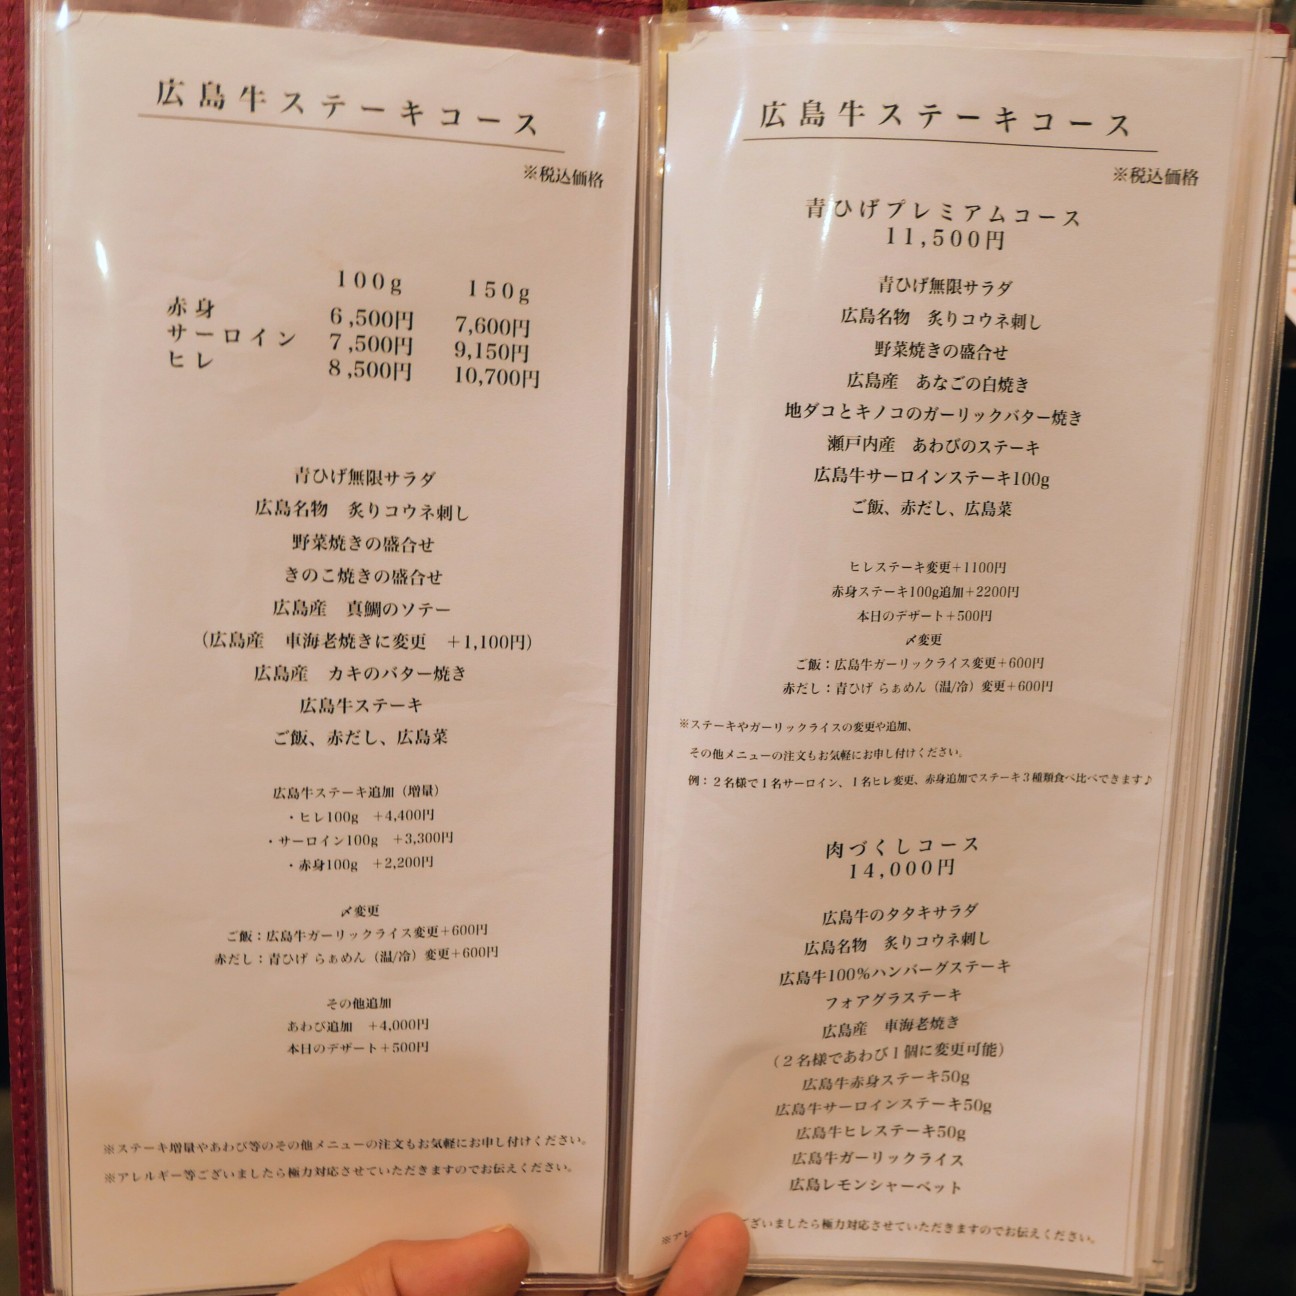 広島牛ステーキコース
※税込価格
100g 150g
赤身 6,500円 7,600円
サーロイン 7,500円 9,150円
ヒレ 8,500円 10,700円
青ひげ無限サラダ
広島名物 炙りコウネ刺し
野菜焼きの盛合せ
きのこ焼きの盛合せ
広島産 真鯛のソテー
(広島産 車海老焼きに変更 +1,100円)
広島産 カキのバター焼き
広島牛ステーキ
ご飯、赤だし、広島菜
広島牛ステーキ追加(増量)
・ヒレ100g +4,400円
・サーロイン100g +3,300円
・赤身100g +2,200円
〆変更
ご飯:広島牛ガーリックライス変更+600円
赤だし:青ひげ らぁめん(温/冷)変更+600円
その他追加
あわび追加 +4,000円
本日のデザート+500円
※ステーキ増量やあわび等のその他メニューの注文もお気軽にお申し付けください。
※アレルギー等ございましたら極力対応させていただきますのでお伝えください。
広島牛ステーキコース
※税込価格
青ひげプレミアムコース
11,500円
青ひげ無限サラダ
広島名物 炙りコウネ刺し
野菜焼きの盛合せ
広島産 あなごの白焼き
地ダコとキノコのガーリックバター焼き
瀬戸内産 あわびのステーキ
広島牛サーロインステーキ100g
ご飯、赤だし、広島菜
ヒレステーキ変更+1100円
赤身ステーキ100g追加+2200円
本日のデザート+500円
〆変更
ご飯:広島牛ガーリックライス変更+600円
赤だし:青ひげ らぁめん(温/冷)変更+600円
※ステーキやガーリックライスの変更や追加、
その他メニューの注文もお気軽にお申し付けください。
例:2名様で1名サーロイン、1名ヒレ変更、赤身追加でステーキ3種類食べ比べできます♪
肉づくしコース
14,000円
広島牛のタタキサラダ
広島名物 炙りコウネ刺し
広島牛100%ハンバーグステーキ
フォアグラステーキ
広島産 車海老焼き
(2名様であわび1個に変更可能)
広島牛赤身ステーキ50g
広島牛サーロインステーキ50g
広島牛ヒレステーキ50g
広島牛ガーリックライス
広島レモンシャーベット
※アレ ございましたら極力対応させていただきますのでお伝えください。